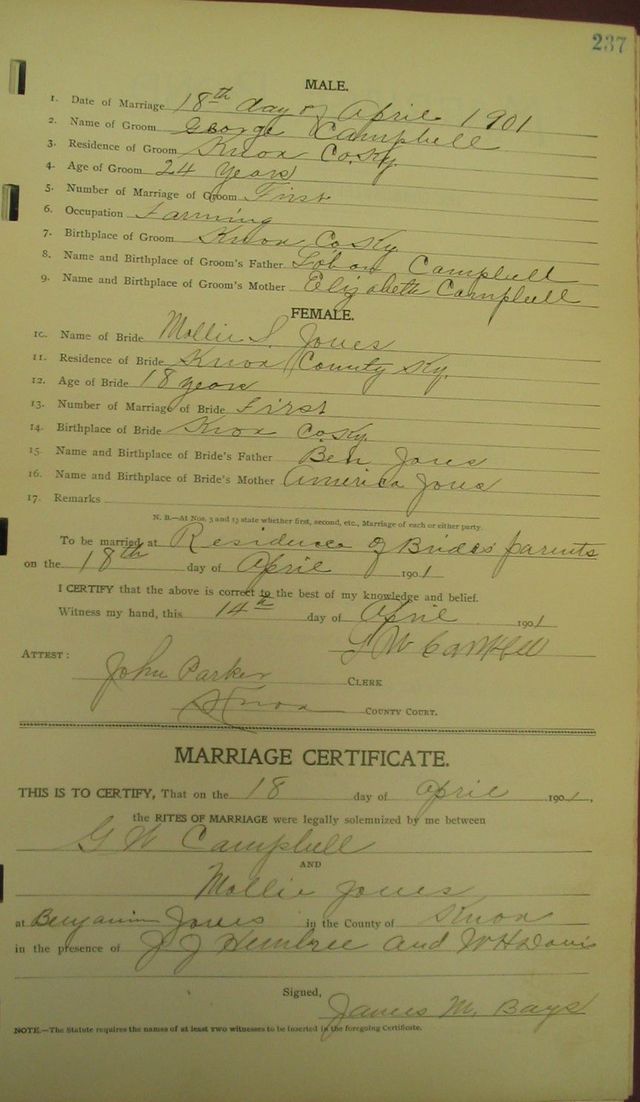 237
MALE.
1. Date of Marriage 18th day of April 1901
2. Name of Groom George Campbell
3. Residence of Groom Knox Co. Ky.
4. Age of Groom 24 years
5. Number of Marriage of Groom First
6. Occupation Farming
7. Birthplace of Groom Knox Co Ky
8. Name and Birthplace of Groom's Father Campbell
9. Name and Birthplace of Groom's Mother Elizabeth Campbell
FEMALE.
10. Name of Bride Mollie S. Jones
11. Residence of Bride Knox County Ky.
12. Age of Bride 18 years
13. Number of Marriage of Bride First
14. Birthplace of Bride Knox Co. Ky
15. Name and Birthplace of Bride's Father Ben Jones
16. Name and Birthplace of Bride's Mother America Jones
17. Remarks
N. B.—At Nos. 5 and 13 state whether first, second, etc., Marriage of each or either party.
To be married at Residence of Brides parents
on the 18th day of April 1901
I CERTIFY that the above is correct to the best of my knowledge and belief.
Witness my hand, this 14th day of April 1901
G W Campbell
ATTEST:
John Parker CLERK
Knox COUNTY COURT.
MARRIAGE CERTIFICATE.
THIS IS TO CERTIFY, That on the 18 day of April 1901,
the RITES OF MARRIAGE were legally solemnized by me between
G W Campbell
AND
Mollie Jones
at Benjamin Jones in the County of Knox
in the presence of J J Hembree and W H Davis
Signed,
James M. Bays
NOTE.—The Statute requires the names of at least two witnesses to be inserted in the foregoing Certificate.